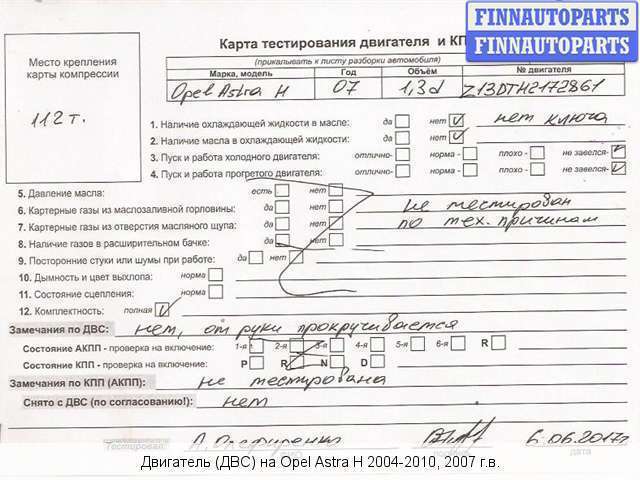 FINNAUTOPARTS
FINNAUTOPARTS
Карта тестирования двигателя и КП
(прикалывать к листу разборки автомобиля)
Место крепления
карты компрессии
112 т.
Марка, модель Год Объём № двигателя
Opel Astra H 07 1,3d Z13DTH2172861
1. Наличие охлаждающей жидкости в масле: да нет нет ключа
2. Наличие масла в охлаждающей жидкости: да нет
3. Пуск и работа холодного двигателя: отлично- норма- плохо- не завелся-
4. Пуск и работа прогретого двигателя: отлично- норма- плохо- не завелся-
5. Давление масла: есть нет
6. Картерные газы из маслозаливной горловины: да нет не тестирован
7. Картерные газы из отверстия масляного щупа: да нет по тех. причинам
8. Наличие газов в расширительном бачке: да нет
9. Посторонние стуки или шумы при работе: да нет
10. Дымность и цвет выхлопа: норма
11. Состояние сцепления: норма
12. Комплектность: полная
Замечания по ДВС: нет, от руки прокручивается
Состояние АКПП - проверка на включение: 1-я 2-я 3-я 4-я 5-я 6-я R
Состояние КПП - проверка на включение: P R N D
Замечания по КПП (АКПП): не тестирована
Снято с ДВС (по согласованию!): нет
Тестировал: 6.06.2017г
Двигатель (ДВС) на Opel Astra H 2004-2010, 2007 г.в.